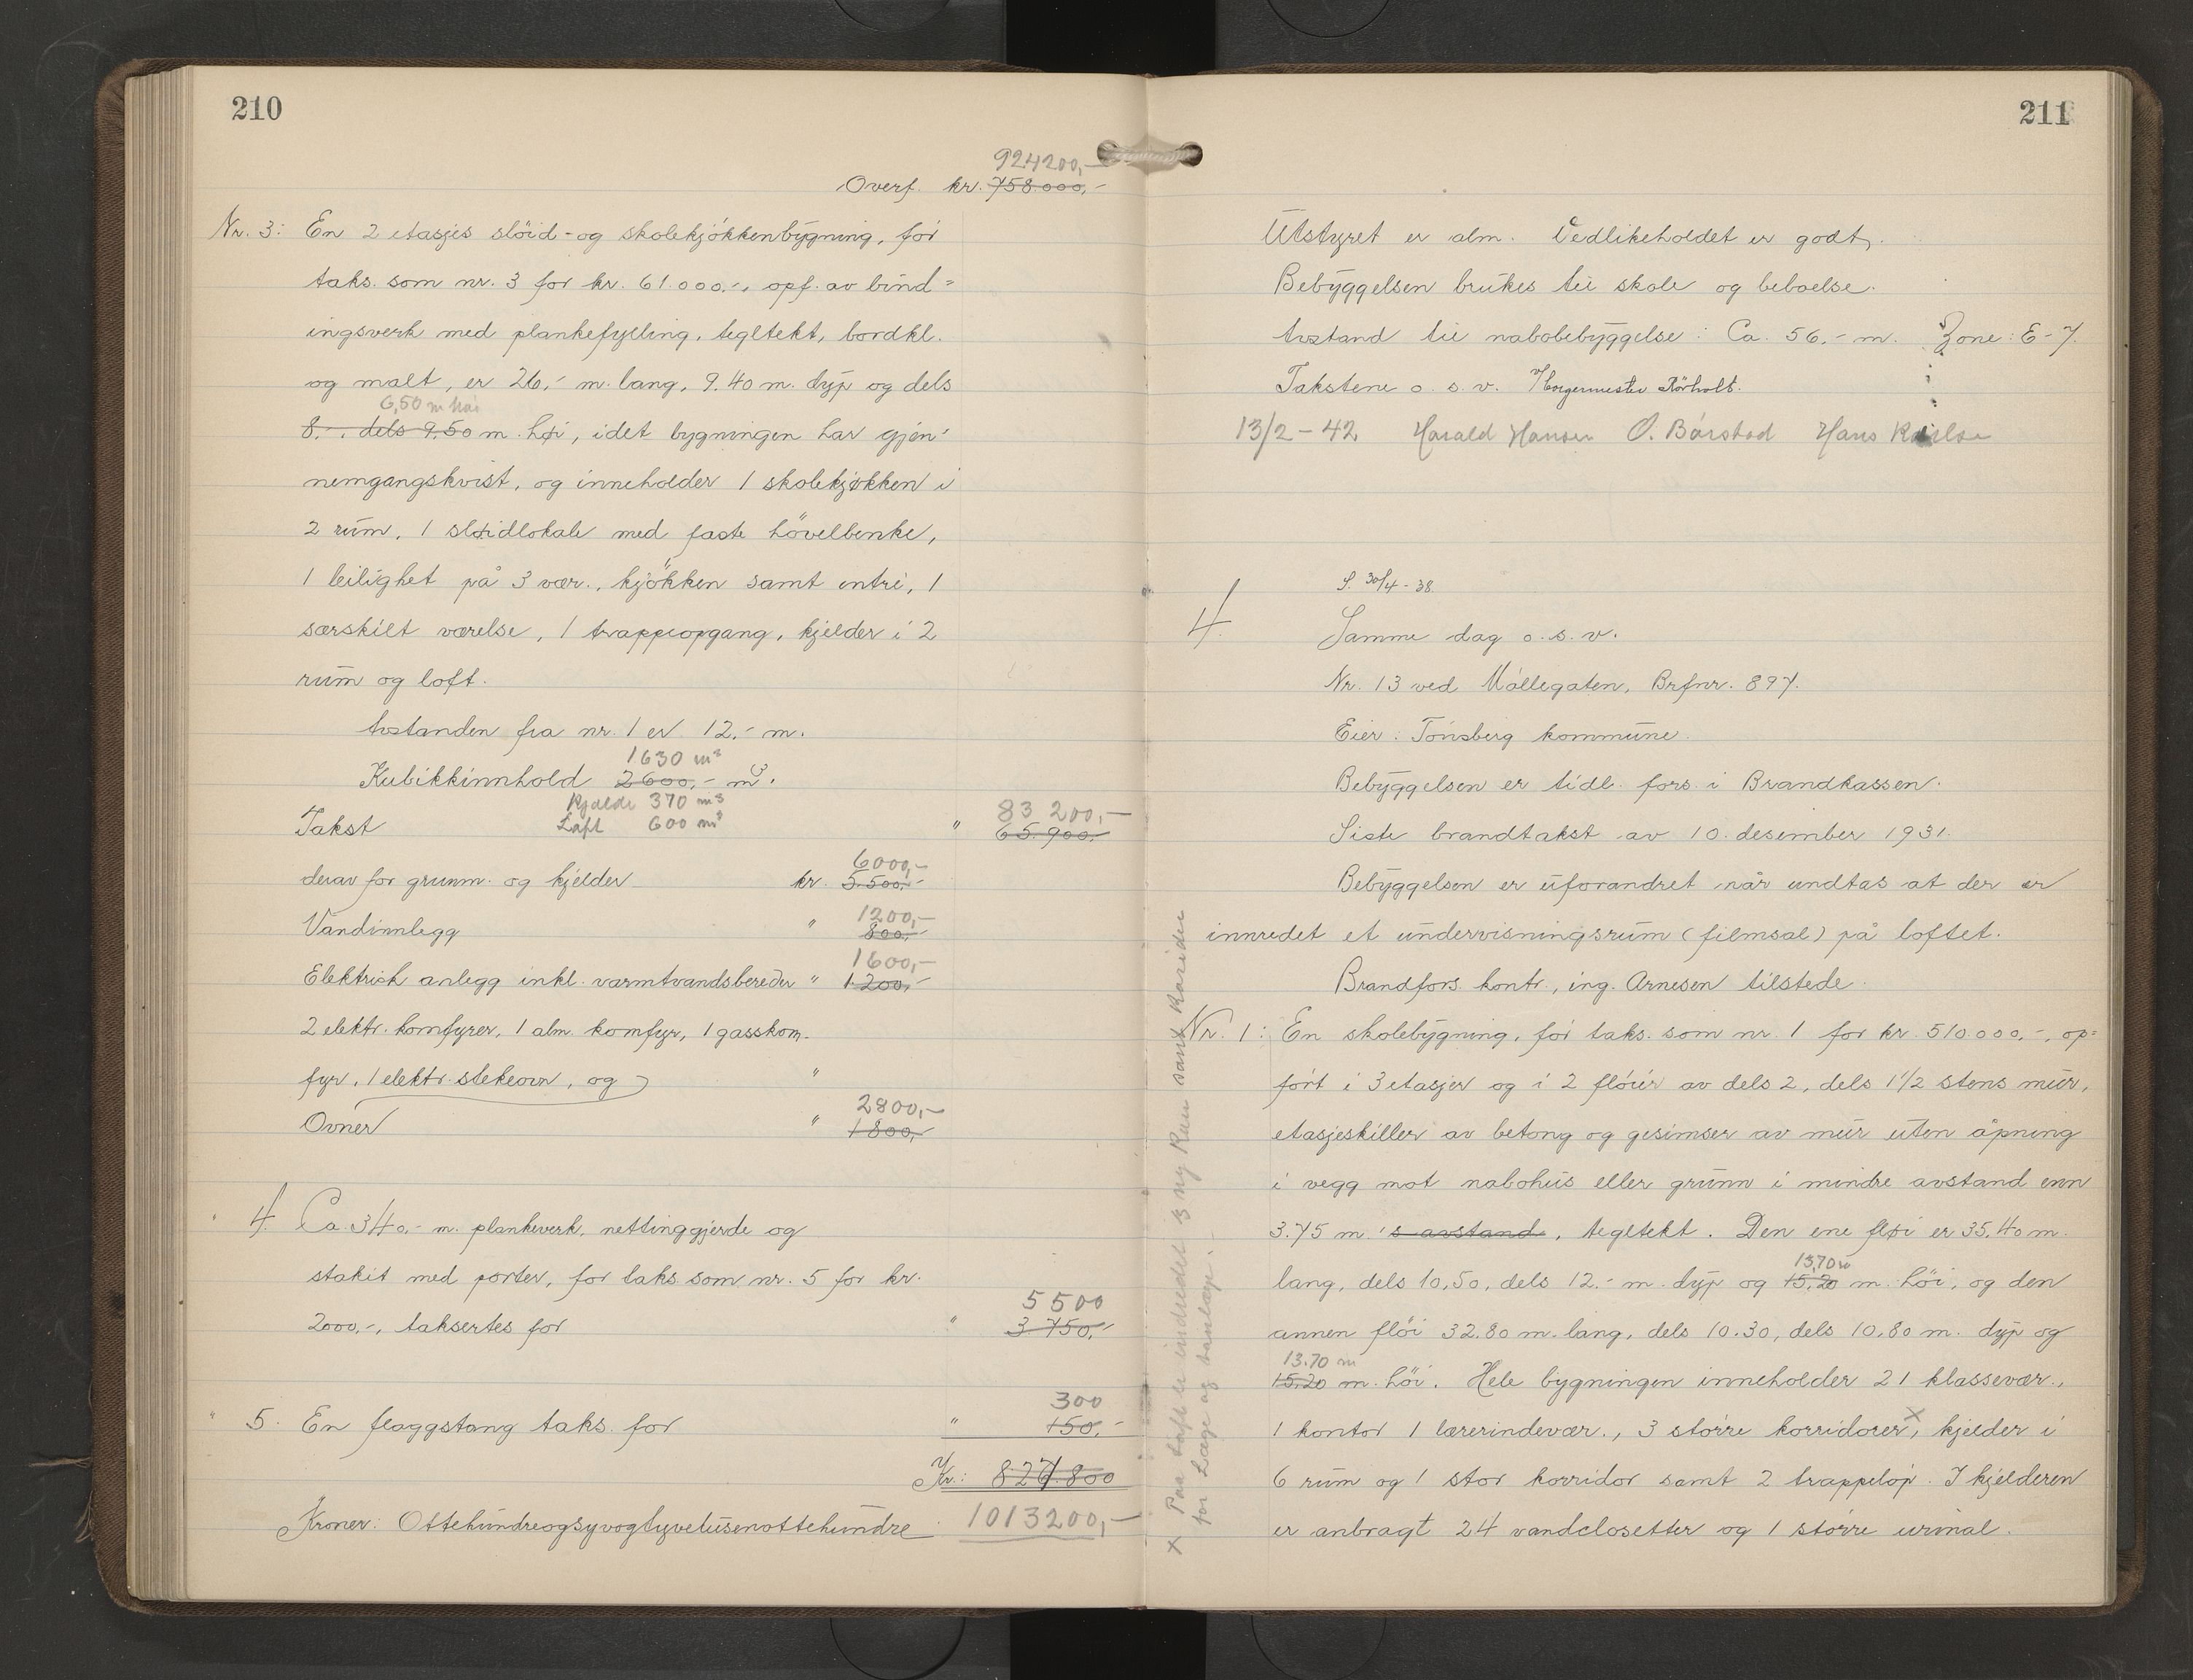 210
924200,-
Overf. kr. 758.000,-
Nr. 3: En 2 etasjes slöid- og skolekjökkenbygning, før
taks. som nr. 3 for kr. 61.000.-, opf. av bind=
ingsverk med plankefylling, tegltekt, bordkl.
og malt, er 26,- m. lang, 9.40 m. dyp og dels
6,50 m høi
8.-, dels 9.50 m. høi, idet bygningen har gjen-
nemgangskvist, og inneholder 1 skolekjøkken i
2 rum, 1 sløidlokale med faste hövelbenke,
1 leilighet på 3 vær., kjökken samt entré, 1
særskilt værelse, 1 trappeopgang, kjelder i 2
rum og loft.
Avstanden fra nr. 1 er 12.- m.
1630 m³
Kubikkinnhold 2600,- m³.
Kjelder 370 m³
83 200,-
Takst Loft 600 m³ " 65.900,-
6000,-
derav for grunm. og kjelder kr. 5.500,-
1200,-
Vandinnlegg " 800,-
1600,-
Elektrisk anlegg inkl. varmtvandsbereder " 1.200,-
2 elektr. komfyrer, 1 alm. komfyr, 1 gasskom-
fyr, 1 elektr. stekeovn, og "
2800,-
Ovner " 1.800,-
" 4. Ca. 340,- m. plankeverk, nettinggjerde og
stakit med porter, før taks. som nr. 5 for kr.
5500
2000,-, taksertes for " 3.750,-
300
" 5. En flaggstang taks. for " 150,-
Kr.: 827.800
Kroner: Ottehundreogsyvogtyvetusenottehundre 1013200,-
211
Utstyret er alm. Vedlikeholdet er godt.
Bebyggelsen brukes til skole og beboelse.
Avstand til nabobebyggelse: Ca. 56.- m. Zone: E-7.
Takstene o. s. v. Borgermester Rörholt.
13/2-42 Harald Hansen O. Bårstad Hans
S. 30/4-38.
4. Samme dag o. s. v.
Nr. 13 ved Möllegaten, Brfnr. 897.
Eier: Tönsberg kommune.
Bebyggelsen er tidl. fors. i Brandkassen.
Siste brandtakst av 10. desember 1931.
Bebyggelsen er uforandret når undtas at der er
innredet et undervisningsrum (filmsal) på loftet.
Brandfors. kontr., ing. Arnesen tilstede.
Nr. 1: En skolebygning, før taks. som nr. 1 for kr. 510.000,-, op=
ført i 3 etasjer og i 2 fløier av dels 2, dels 1 1/2 stens mur,
etasjeskiller av betong og gesimser av mur uten åpning
i vegg mot nabohus eller grunn i mindre avstand enn
3.75 m. 's avstand, tegltekt. Den ene fløi er 35,40 m.
13,70 m
lang, dels 10,50, dels 12.- m. dyp og 15,20 m. höi, og den
annen flöi 32.80 m. lang, dels 10.30, dels 10.80 m. dyp og
13.70 m
15.20 m. höi. Hele bygningen inneholder 21 klassevær.,
1 kontor 1 lærerindevær., 3 större korridorer, x kjelder i
6 rum og 1 stor korridor samt 2 trappeløp. I kjelderen
er anbragt 24 vandclosetter og 1 större urinal.
x Paa loftet indredet 3 ny Rum samt Korider
for Læge og tanlæge.